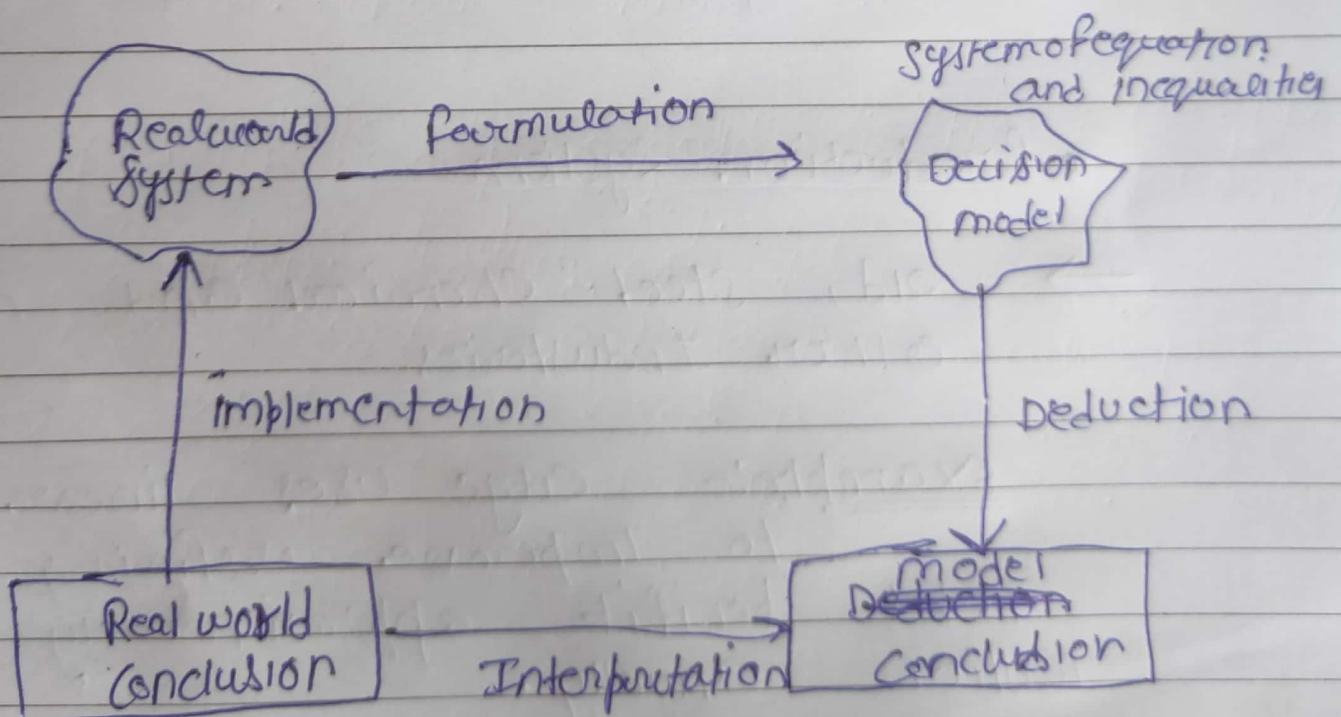 System of equation
and inequalities
Realworld
System
formulation
Decision
model
implementation
Deduction
Real world
Conclusion
Interpretation
model
Deduction
Conclusion